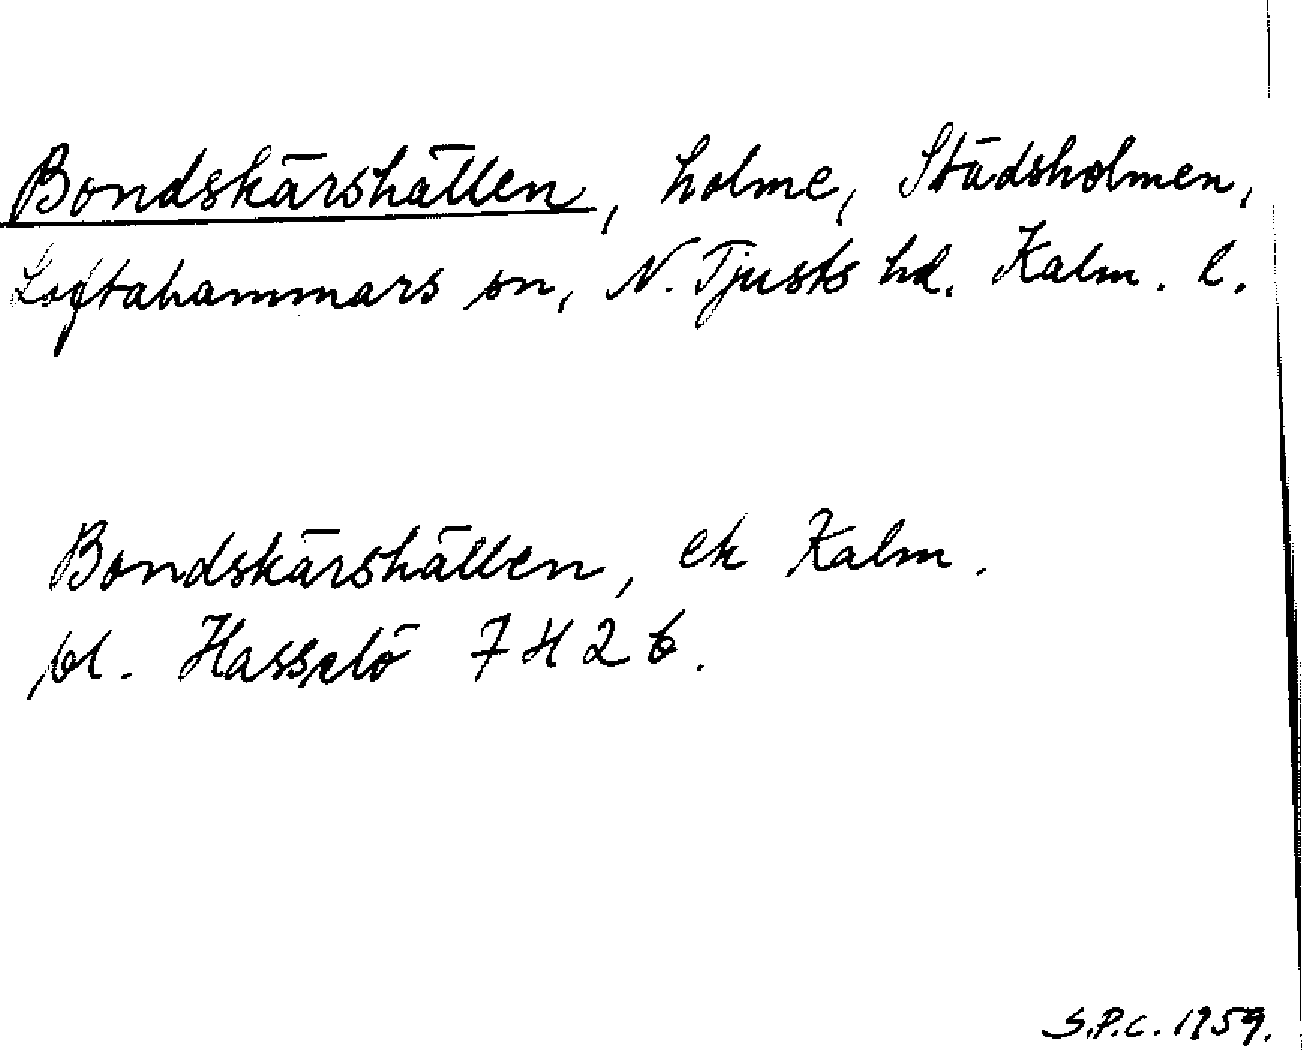 Bondskärshällen, holme, Städsholmen,
Loftahammars sn, N. Tjusts hd. Kalm. l.
Bondskärshällen, ek Kalm.
bl. Hasselö 7 H 2 b.
S.P.C. 1959.